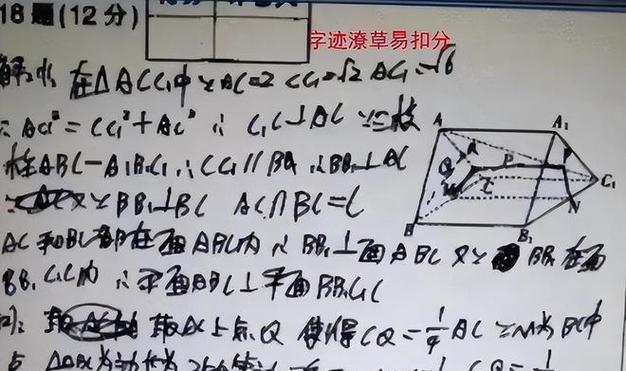 18题(12分)
字迹潦草易扣分
解:(1) 在△ACC₁中 ∵AC=2 CC₁=√2 AC₁=√6
∴AC₁²=CC₁²+AC² ∴C₁C⊥AC ∵三棱
柱ABC-A₁B₁C₁ ∴CC₁∥BB₁ ∴BB₁⊥AC
∵BB₁⊥BC AC∩BC=C
AC和BC都在面ABC内 ∴BB₁⊥面ABC 又∵BB₁在面
BB₁C₁C内 ∴平面ABC⊥平面BB₁C₁C
取AC上点Q 使得CQ=1/4AC ∵M为BC中
点
A A₁ P Q C C₁ N B B₁